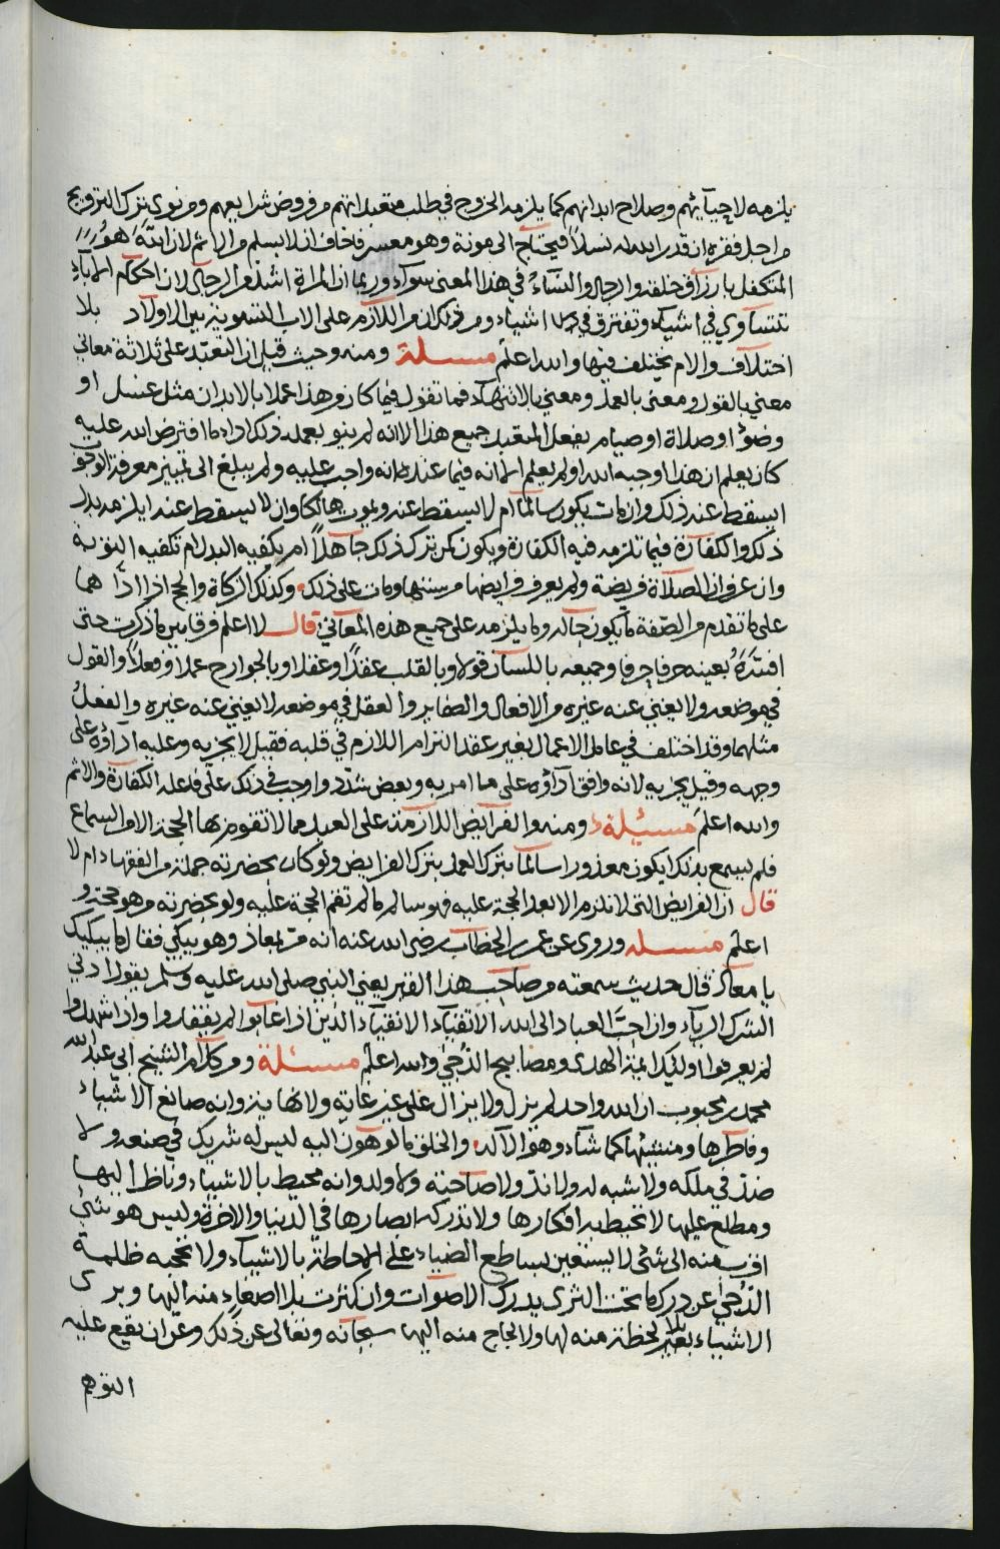 يلزمه لاحيآئهم وصلاح ابدانهم كما يلزمه الخروج في طلب متعبداتهم من فروض شرايعهم ومن نوى بترك التزويج
من اجل فقره ان قدر الله له نسلا فيحتاج الى مونة وهو معسر فاخاف ان لا يسلم من الاثم لان الله هو
المتكفل بارزاق خلقه والرجال والنسآء في هذا المعنى سوآء وربما ان المراة اشد من الرجال لان احكام الابآء
تتساوى في اشيآء وتفترق في اشياء ومن ذلك ان اللازم على الاب التسوية بين الاولاد بلا
اختلاف والام يختلف فيها والله اعلم مسئلة ومنه وحيث قيل ان التعبد على ثلاثة معاني
معنى بالقول ومعنى بالعمل ومعنى بالانتهآء فما تقول فيما كان من هذا عملا بالابدان مثل غسل او
وضوء او صلاة او صيام يفعل المتعبد جميع هذا الا انه لم ينو بعمله ذلك اداء ما افترض الله عليه
كان يعلم ان هذا اوجبه الله او لم يعلم الا انه فيما عنده انه واجب عليه ولم يبلغ الى تمييز معرفة الوجوب
ايسقط عنه ذلك وان مات يكون سالما ام لا يسقط عنه ويموت هالكا وان لا يسقط عنه ايلزمه بدل
ذلك والكفارة فيما تلزمه فيه الكفارة ويكون كمن ترك ذلك جاهلا ام يكفيه البدل ام تكفيه التوبة
وان عرف ان الصلاة فريضة ولم يعرف فرايضها من سننها ومات على ذلك وكذلك الزكاة والحج اذا ادّاهما
على ما تقدم من الصفة ما يكون حاله وما يلزمه على جميع هذه المعاني قال لا اعلم فرقا بين ما ذكرت حتى
افسّره بعينه حرفا حرفا وجميعه باللسان قولا وبالقلب عقدا وعقلا وبالجوارح عملا وفعلا والقول
في موضعه ولا يغني عنه غيره من الافعال والضماير والعقل في موضعه لا يغني عنه غيره والفعل
مثلهما وقد اختلف في عامل الاعمال بغير عقد التزام اللازم في قلبه فقيل لا يجزيه وعليه ادآؤه على
وجهه وقيل يجزيه لانه وافق ادآؤه على ما امر به وبعض شدّد واوجب في ذلك على فاعله الكفارة والاثم
والله اعلم مسئلة ومنه والفرآيض اللازمة على العبد مما لا تقوم بها الحجة الا من السماع
فلم يسمع بذلك ايكون معذورا سالما بترك العمل بترك الفرايض ولو كان بحضرته جملة من الفقهاء ام لا
قال ان الفرايض التي لا تلزم الا بعد الحجة عليه فهو سالم ما لم تقم الحجة عليه ولو بحضرته من هو حجة و
اعلم مسئلة وروي عن عمر بن الخطاب رضي الله عنه انه مرّ بمعاذ وهو يبكي فقال ما يبكيك
يا معاذ قال حديث سمعته من صاحب هذا القبر يعني النبي صلى الله عليه وسلم يقول ادنى
الشرك الريآء وان احبّ العباد الى الله الاتقيآء الانقيآء الذين اذا غابوا لم يفقدوا واذا شهدوا
لم يعرفوا اولئك ايمة الهدى ومصابيح الدّجى والله اعلم مسئلة ومن كلام الشيخ ابي عبدالله
محمد بن محبوب ان الله واحد لم يزل ولا يزال على غير غاية ولا نهاية وانه صانع الاشياء
وفاطرها ومنشئها كما شآء وهو الآله والخلق مالوهون اليه ليس له شريك في صنعه ولا
ضدّ في ملكه ولا شبه له ولا ندّ ولا صاحبة ولا ولد وانه محيط بالاشياء وناظر اليها
ومطلع عليها لا تحيط به افكارها ولا تدركه ابصارها في الدنيا والاخرة وليس هو بشئ
اقرب منه الى شئ لا يستعين بساطع الضياء على الاحاطة بالاشيآء ولا تحجبه ظلمة
الدّجى عن درك ما تحت الثرى يدرك الاصوات وان كثرت بلا اصغاءٍ منه اليها ويرى
الاشياء بغير لحظة منه لها ولا لجاج منه اليها سبحانه وتعالى عن ذلك وعن ان يقع عليه
التوهم